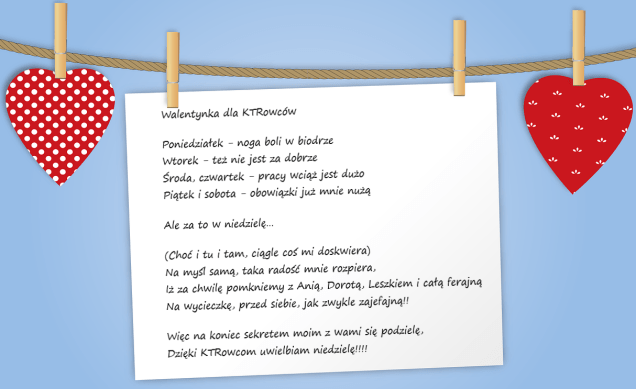 Walentynka dla KTRowców
Poniedziałek - noga boli w biodrze
Wtorek - też nie jest za dobrze
Środa, czwartek - pracy wciąż jest dużo
Piątek i sobota - obowiązki już mnie nużą
Ale za to w niedzielę...
(Choć i tu i tam, ciągle coś mi doskwiera)
Na myśl samą, taka radość mnie rozpiera,
Iż za chwilę pomkniemy z Anią, Dorotą, Leszkiem i całą ferajną
Na wycieczkę, przed siebie, jak zwykle zajefajną!!
Więc na koniec sekretem moim z wami się podzielę,
Dzięki KTRowcom uwielbiam niedzielę!!!!